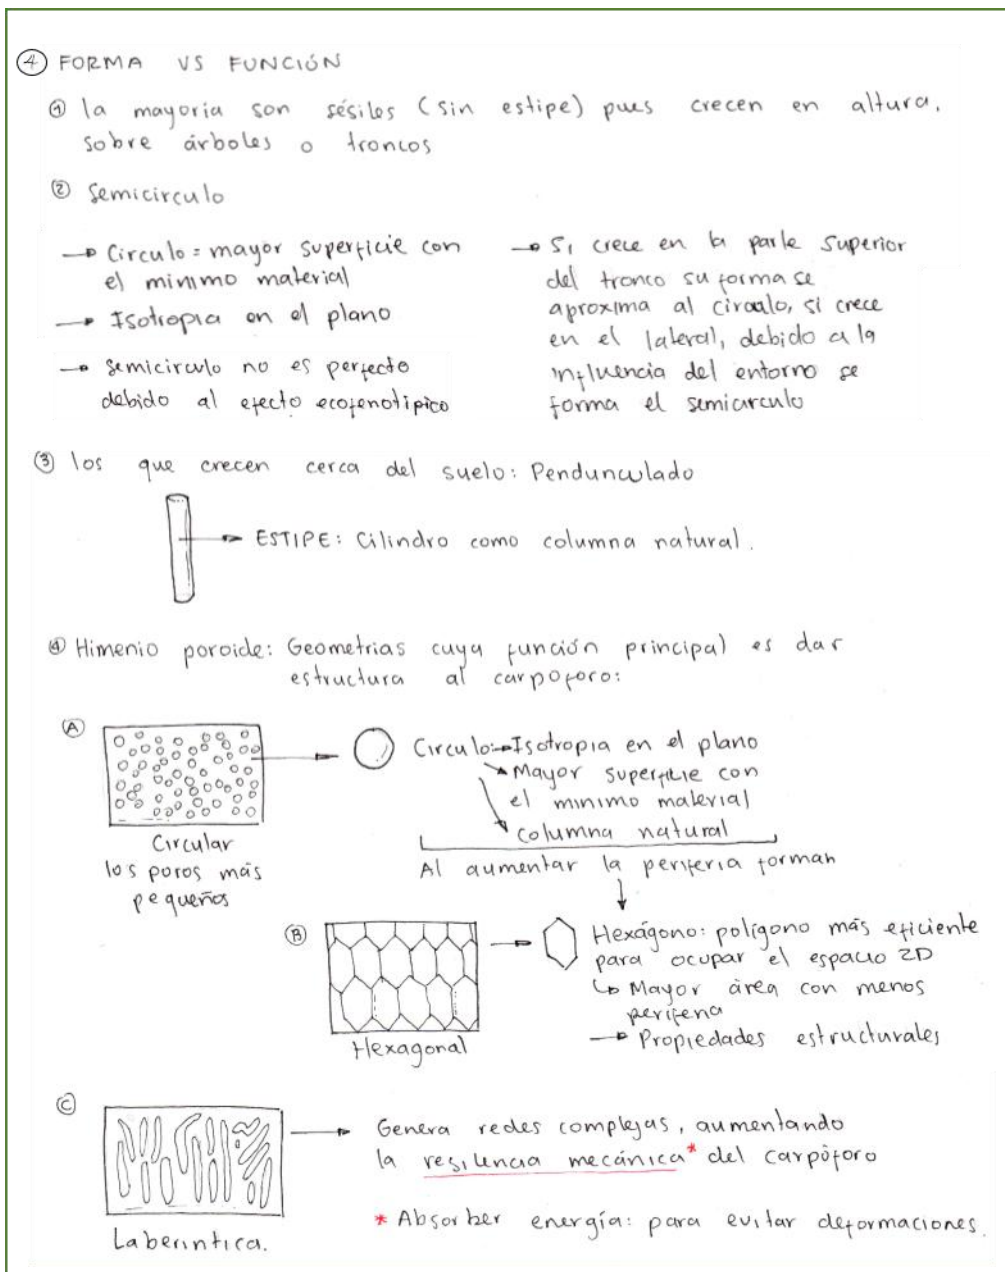 ④ FORMA VS FUNCIÓN
① la mayoria son sésiles (sin estipe) pues crecen en altura,
sobre árboles o troncos
② Semicirculo
→ Circulo = mayor superficie con
el minimo material
→ Isotropia en el plano
→ Semicirculo no es perfecto
debido al efecto ecofenotipico
→ Si crece en la parte superior
del tronco su forma se
aproxima al circulo, si crece
en el lateral, debido a la
influencia del entorno se
forma el semicirculo
③ los que crecen cerca del suelo: Pendunculado
→ ESTIPE: Cilindro como columna natural.
④ Himenio poroide: Geometrias cuya función principal es dar
estructura al carpoforo:
Ⓐ
Circular
los poros más
pequeños
Circulo:→Isotropia en el plano
→ Mayor superficie con
el minimo material
→ columna natural
Al aumentar la periferia forman
Ⓑ
Hexagonal
Hexágono: polígono más eficiente
para ocupar el espacio 2D
↳ Mayor área con menos
periferia
→ Propiedades estructurales
Ⓒ
Laberintica.
Genera redes complejas, aumentando
la resilencia mecánica* del carpóforo
* Absorber energía: para evitar deformaciones.